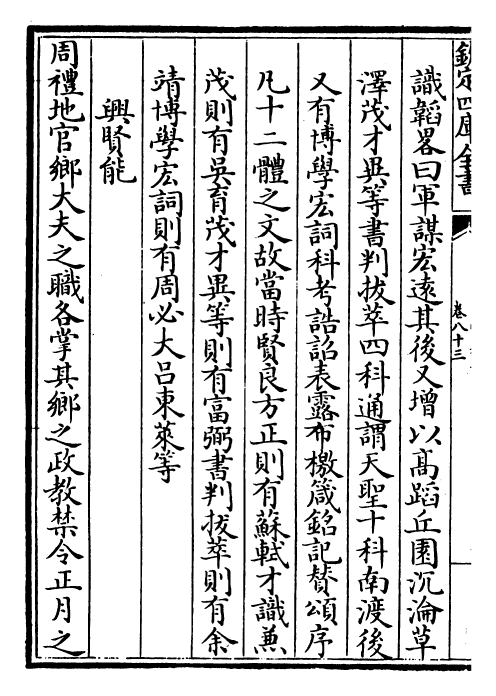 欽定四庫全書
卷八十三
識韜畧曰軍謀宏遠其後又增以高蹈丘園沉淪草
澤茂才異等書判拔萃四科通謂天聖十科南渡後
又有博學宏詞科考誥詔表露布檄箴銘記贊頌序
凡十二體之文故當時賢良方正則有蘇軾才識兼
茂則有吳育茂才異等則有富弼書判拔萃則有余
靖博學宏詞則有周必大呂東萊等
興賢能
周禮地官鄉大夫之職各掌其鄉之政教禁令正月之